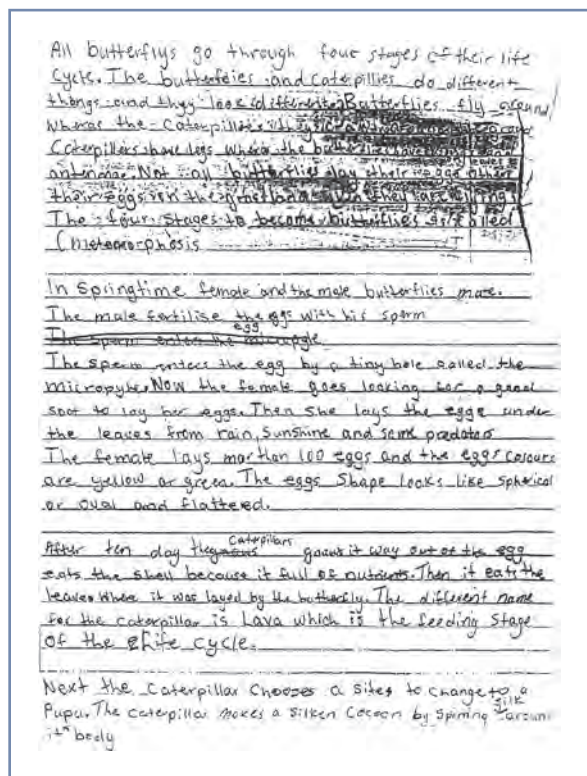 All butterflys go through four stages of their life
cycle. The butterfeies and caterpillies do different
things and they look differente. Butterflies fly around
wheras the caterpillers
Caterpillers have legs where the butterflies have
antennae. Not all butterflies lay their eggs other
their eggs in the grassland when they are
The four stages to become butterflies is called
(metomorphosis
In springtime female and the male butterflies mate.
The male fertilise the eggs with his sperm
The sperm enters the egg micropyle
The sperm enters the egg by a tiny hole called the
micropyle. Now the female goes looking for a good
spot to lay her eggs. Then she lays the eggs under
the leaves from rain, sunshine and some predators
The female lays marthan 100 eggs and the eggs colours
are yellow or green. The eggs shape looks like spherical
or oval and flattered.
After ten day the Caterpillars it way out of the egg
eats the shell because it full of nutrients. Then it eats the
leaves where it was layed by the butterfly. The different name
for the caterpillar is Lava which is the feeding stage
of the life cycle.
Next the caterpillar chooses a sites to change to a
Pupa. The caterpillar makes a silken cocoon by spining silk around
it body